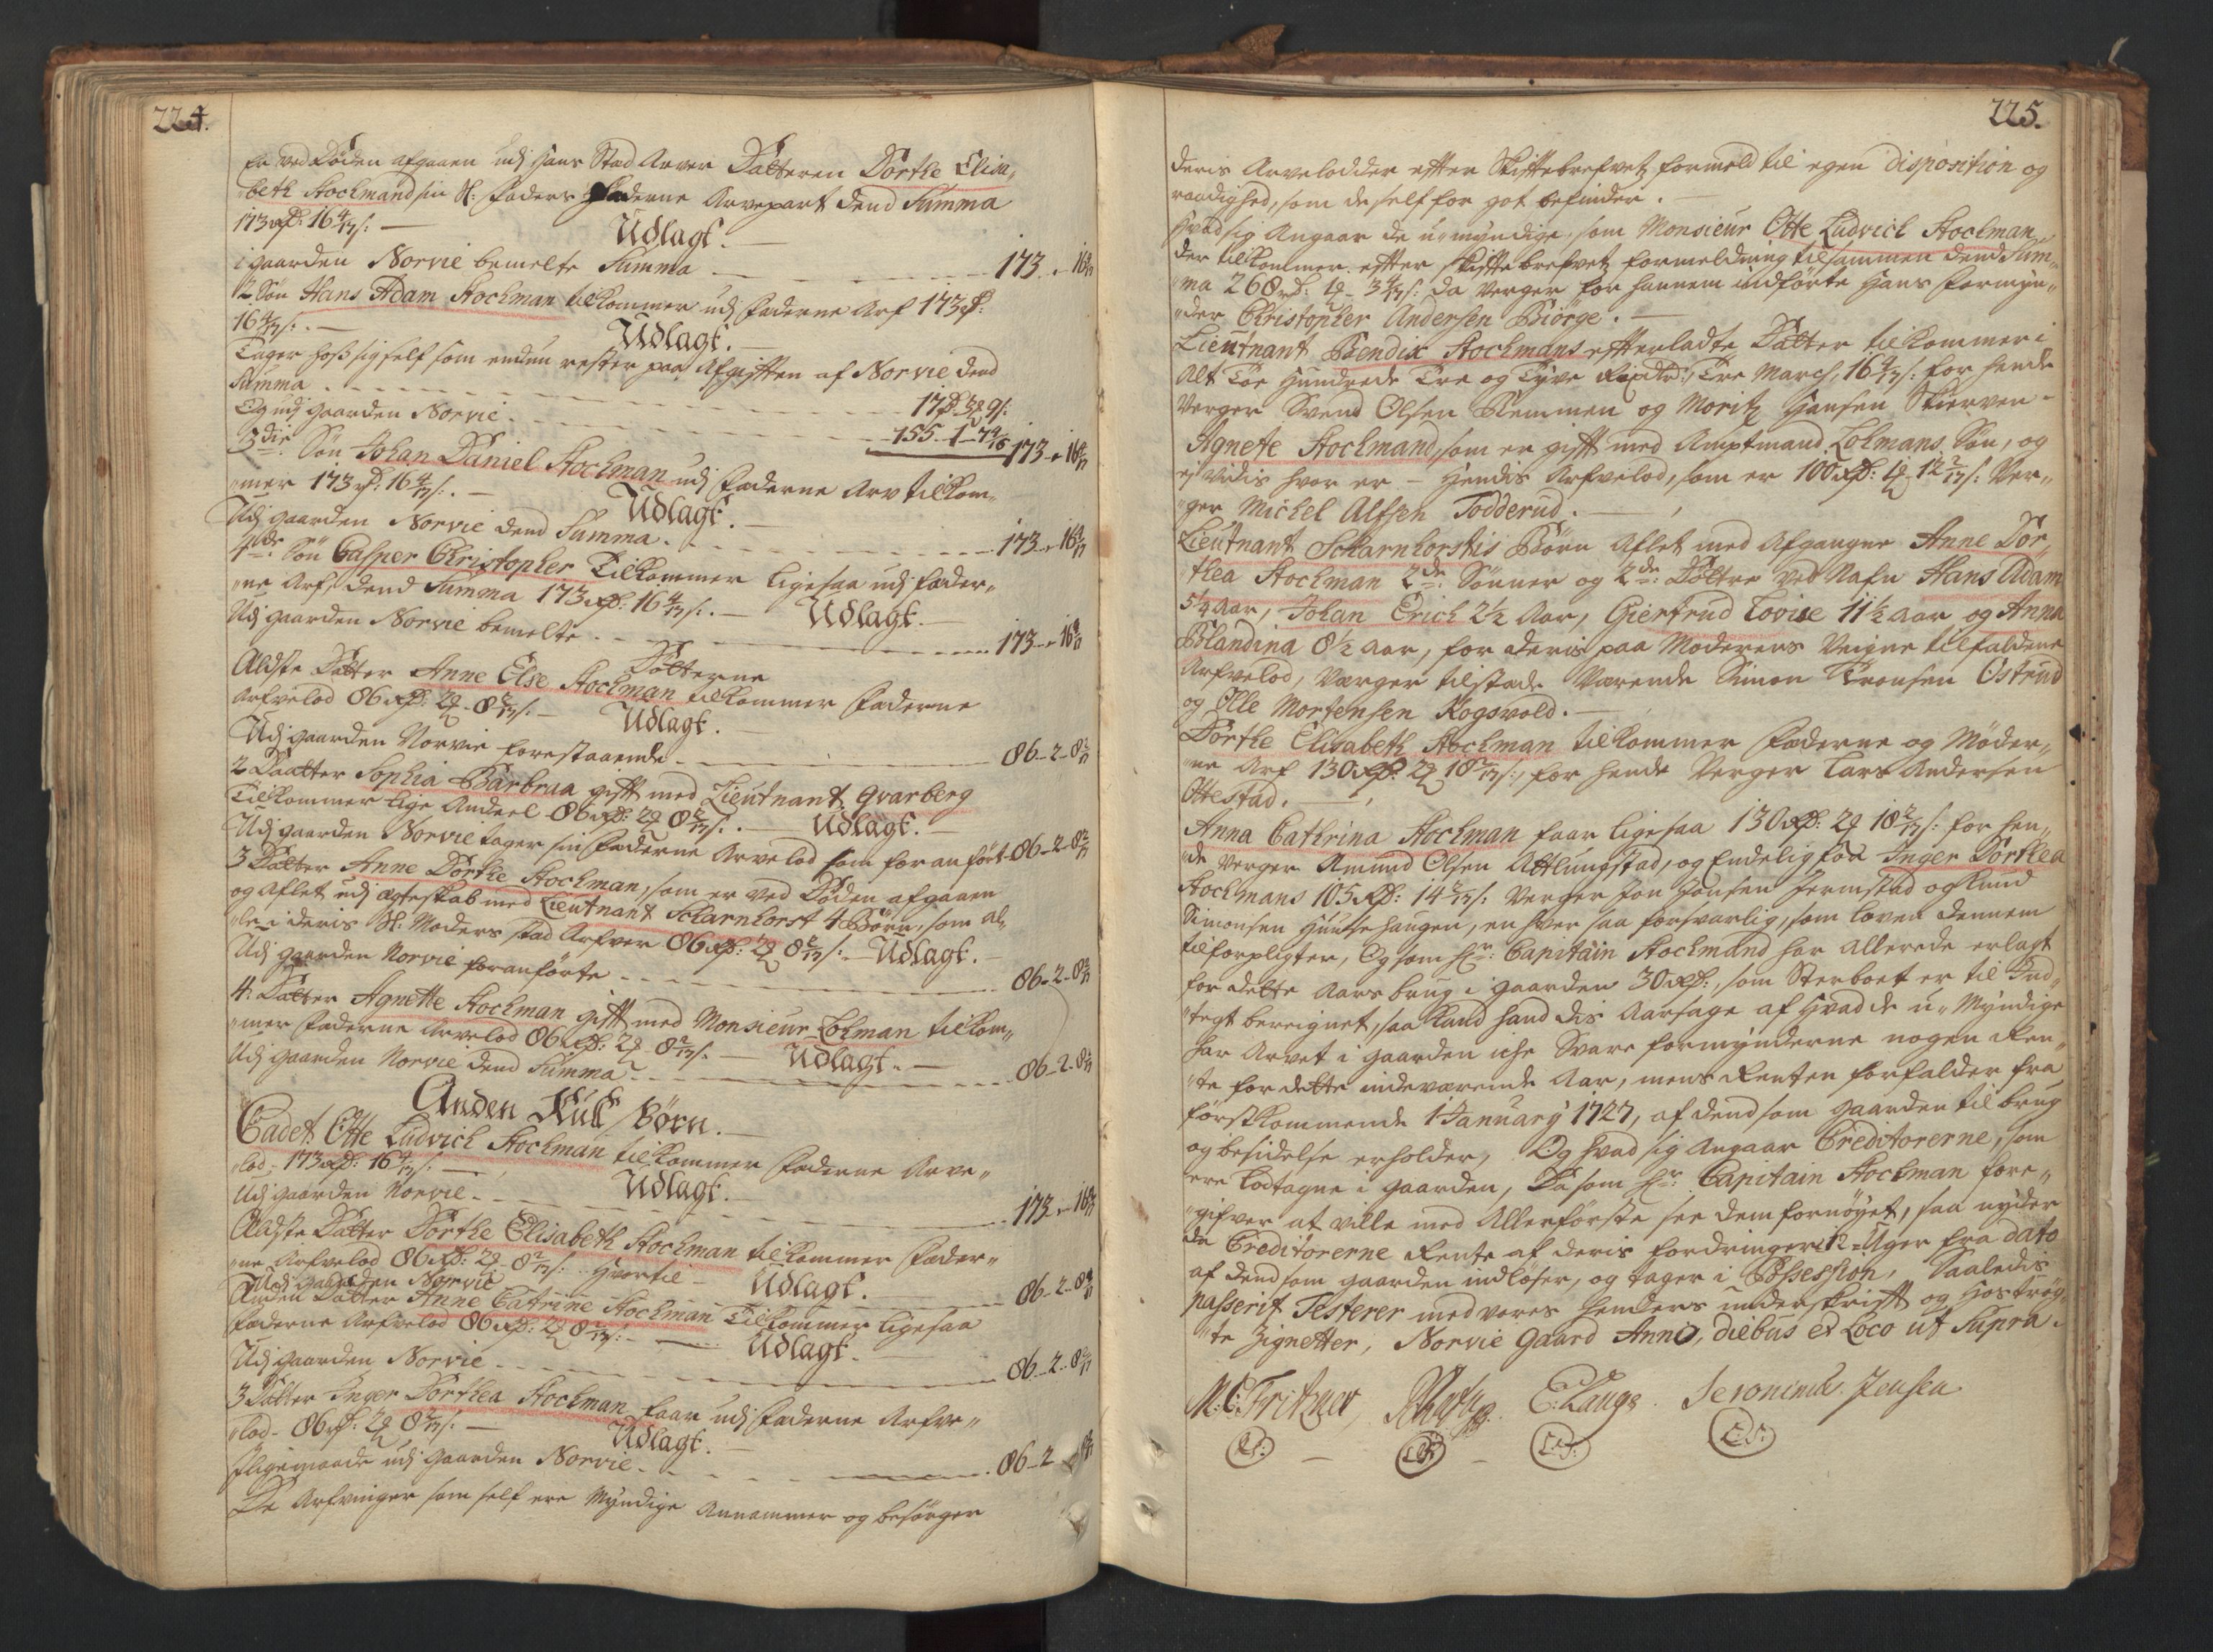 224.
er ved Døden afgaaen udj hans Stad Arver Datteren Dorthe Elisa„
beth Stockmand sin Sl: Faders Fæderne Arvepart dend Summa
173 rd: 16 4/17 s: —
Udlagt. —
i gaarden Norvie bemelte Summa — 173 „ 16 4/17
2 Søn Hans Adam Stockman tilkommer udj Fæderne Arf 173 rd:
16 4/17 s: . —
Udlagt. —
Tager hoss sig self som endnu rester paa Afgiftten af Norvie dend
Summa 17 rd 3 9 s:
Og udj gaarden Norvie. 155 – 1 – 7 4/17 173 „ 16 4/17
3die Søn Johan Daniel Stockman udj Fæderne Arv tilkom„
„mer 173 rd: 16 4/17 s: . —
Udlagt. —
Udj gaarden Norvie dend Summa. 173 „ 16 4/17
4de Søn Casper Christopher Tilkommer ligesaa udj Fæder„
„ne Arf, dend Summa 173 rd: 16 4/17 s: . — Udlagt. —
Udj gaarden Norvie bemelte 173 „ 16 4/17
Døtterne
Aldste Datter Anne Else Stockman tilkommer Fæderne
Arfvelod 86 rd: 2 8 2/17 s: — Udlagt.
Udj gaarden Norvie forestaaende 86 – 2 – 8 2/17
2 Daatter Sophia Barbraa gift med Lieutnant Qvarberg
Tilkommer lige Andeel 86 rd: 2 8 2/17 s: . — Udlagt. —
Udj gaarden Norvie tager sin Fæderne Arvelod som for anført 86 – 2 – 8 2/17
3 Datter Anne Dorthe Stockman, som er ved Døden afgaaen
og Aflet udj ægteskab med Lieutnant Scharnhorst 4 Børn, som al„
„le i deris Sl: Moders stad Arfver 86 rd: 2 8 2/17 s: — Udlagt. —
Udj gaarden Norvie foranførte 86 – 2 – 8 2/17
4: Datter Agnette Stockman gift med Monsieur Colman tilkom„
„mer Fæderne Arvelod 86 rd: 2 8 2/17 s: — Udlagt. —
Udj gaarden Norvie dend Summa 86 – 2 – 8 2/17
Anden Kull Børn. —
Cadet Otte Ludvich Stockman tilkommer Fæderne Arve„
„lod, 173 rd: 16 4/17 s: —
Udlagt. —
Udj gaarden Norvie. 173 „ 16 4/17
Aldste Datter Dorthe Elisabeth Stockman tilkommer Fæder„
„ne Arfvelod 86 rd: 2 8 2/17 s: hvortil — Udlagt.
Udj gaarden Norvie 86 – 2 – 8 2/17
Anden Datter Anne Catrine Stockman Tilkommer ligesaa
Fæderne Arfvelod 86 rd: 2 8 2/17 s: — Udlagt.
Udj gaarden Norvie 86 – 2 – 8 2/17
3 Datter Inger Dorthea Stockman faar udj Fæderne Arfve„
„lod – 86 rd: 2 8 2/17 s: —
Udlagt. —
Iligemaade udj gaarden Norvie. 86 – 2 – 8 2/17
De Arfvinger som self ere Myndige Annammer og besørger
225.
deris Arvelodder efter Skiftebrefvetz formeld til egen disposition og
raadighed, som de self for got befinder. —
Hvad sig Angaar de u„myndige, som Monsieur Otte Ludvich Stockman,
der tilkommer efter skiftebrefvetz formeldning tilsammen dend Sum„
„ma 268 rd: 1 3 4/17 s: da Verger for hannem indførte hans formyn„
„der Christopher Andersen Biörge. —
Lieutnant Bendix Stockmans efterladte Datter tilkommer i
alt Toe Hundrede Tre og Tyve Rixdr: Tre March, 16 4/17 s: for hende
Verger Svend Olsen Klemmen og Moritz Hansen Skierven –
Agnete Stockmand, som er gift med Amptmand Colmans Søn, og
ej vides hvor er – hendis Arfvelod, som er 100 rd: 1 12 2/17 s: Ver„
„ger Michel Alfsen Todderud. —
Lieutnant Scharnhorstis Børn Aflet med Afgangne Anne Dor„
thea Stockman 2de Sønner og 2de Døttre ved Nafn Hans Adam
5 1/4 aar, Johan Erich 2 1/2 Aar, Giertrud Lovise 11 1/2 aar og Anna
Blandina 8 1/2 aar, for deris paa Moderens Veigne tilfaldene
Arfvelod, Værger tilstæde Værende Simon Tronsen Ostrud
og Olle Mortensen Kogsvold. —
Dorthe Elisabeth Stockman tilkommer Fæderne og Møder„
„ne Arf 130 rd: 2 18 2/17 s: for hende Verger Lars Andersen
Ottestad. —
Anna Cathrina Stockman faar ligesaa 130 rd: 2 18 2/17 s: for hen„
„de Verger Amund Olsen Attlungstad, og Endelig for Inger Dorthea
Stockmans 105 rd: 14 2/17 s: Verger Jon Hansen Jermstad og Knud
Simonsen Huusehaugen, en hver saa forsvarlig, som loven dennem
tilforpligter, Og som Hr: Capitain Stockmand har allerede erlagt
for dette aars brug i gaarden 30 rd:, som Sterboet er til Ind„
„tegt bereignet, saa kand hand dis aarsage af hvad de u„Myndige
har arvet i gaarden icke svare formynderne nogen Ren„
„te for dette indeværende Aar, mens Renten forfalder fra
førstkommende 1 January 1727, af dend som gaarden til brug
og besidelse erholder, Og hvad sig angaar Creditorerne, som
ere lodtagne i gaarden, Da som Hr: Capitain Stockman fore„
„gifver at ville med Allerførste see dem fornøyet, saa nyder
da Creditorerne Rente af deris fordringer 12 Uger fra dato
af dend som gaarden indløser, og tager i Possession, Saaledis
passerit Testerer med vores Henders underskrift og hostrøg„
„te Zignetter, Norvie Gaard Anno, diebus et Loco ut Supra.
M: C: Fritzner E: Lange. Jeronimus Jensen
L:S: L:S: L:S: L:S: